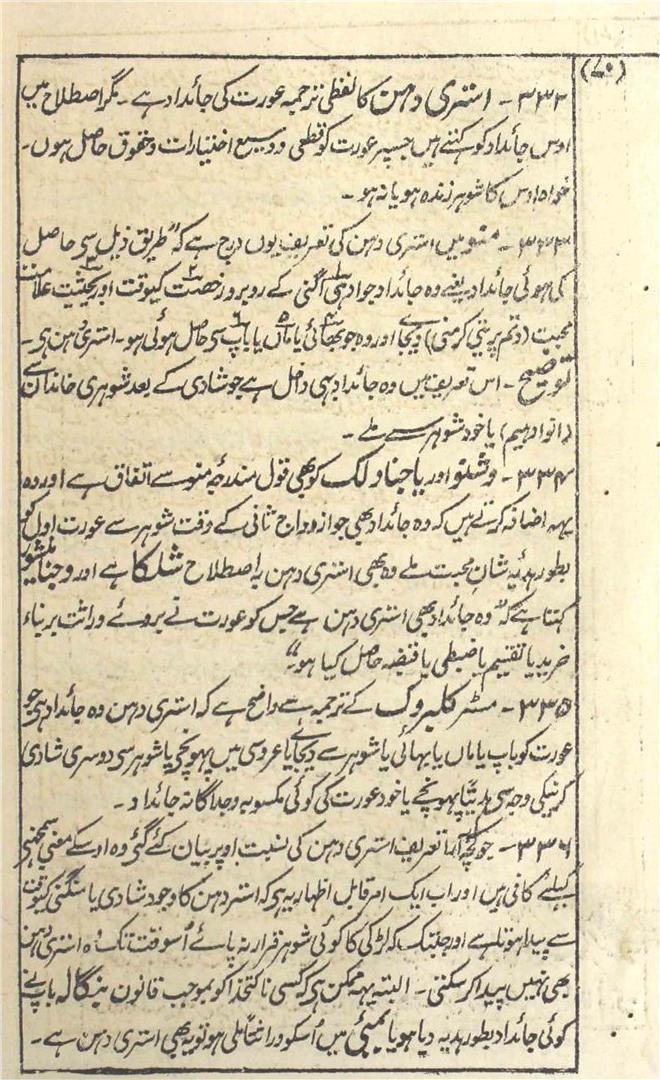 (۷۰)
۳۳۲- استری دہن کا لفظی ترجمہ عورت کی جائداد ہے۔ مگر اصطلاح میں
اوس جائداد کو کہتے ہیں جسپر عورت کو قطعی و وسیع اختیارات و حقوق حاصل ہوں۔
خواہ اوس کا شوہر زندہ ہو یا نہ ہو۔
۳۳۳- منو میں استری دہن کی تعریف یوں درج ہے کہ "طریق ذیل سی حاصل
کی ہوئی جائداد یعنے وہ جائداد جو ادہی اگنی کے روبرو رخصت کیوقت اور بحیثیت علامت
محبت (دتم پریتی کرمنی) دیجاے اور وہ جو بھائی یا ماں یا باپ سی حاصل ہوئی ہو۔ استری دہن ہی۔
توضیح۔ اس تعریف میں وہ جائداد بہی داخل ہے جو شادی کے بعد شوہری خاندان سے
(انوادہیم) یا خود شوہر سے ملے۔
۳۳۴- وشنو اور یاجناولک کو بھی قول مندرجہ منو سے اتفاق ہے اور وہ
یہہ اضافہ کرتے ہیں کہ وہ جائداد بھی جو ازدواج ثانی کے وقت شوہر سے عورت اول کو
بطور ہدیہ شان محبت ملے وہ بھی استری دہن باصطلاح شلکا ہے اور وجنانیشور
کہتا ہے کہ "وہ جائداد بھی استری دہن ہے جس کو عورت نے بروئے وراثت بربناء
خرید یا تقسیم یا ضبطی یا قبضہ حاصل کیا ہو"۔
۳۳۵- مسٹر کلبروک کے ترجمہ سے واضح ہے کہ استری دہن وہ جائداد ہی جو
عورت کو باپ یا ماں یا بہائی یا شوہر سے دیجاے یا عروسی میں پہونچی یا شوہر سی دوسری شادی
کرنیکی وجہ سی ہدیتاً پہونچے یا خود عورت کی کوئی مکسوبہ وجداگانہ جائداد۔
۳۳۶- جو کچھ تعریف استری دہن کی نسبت اوپر بیان کئے گئی وہ اوسکے معنی سمجھنی
کیلئے کافی ہیں اور اب ایک امر قابل اظہار یہ ہی کہ استردہن کا وجود شادی یا منگنی کیوقت
سے پیدا ہوتا ہے اور جبتک کہ لڑکی کا کوئی شوہر قرار نہ پائے اُسوقت تک وہ استری دہن
بھی نہیں پیدا کرسکتی۔ البتہ یہہ ممکن ہی کہ کسی ناکتخدا کو بموجب قانون بنگالہ باپ نے
کوئی جائداد بطور ہدیہ دیا ہو یا بمبئی میں اُسکو وراثتاً ملی ہو تو یہ بھی استری دہن ہے۔